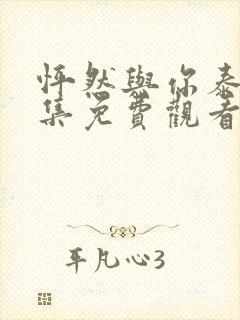 怦然與你泰
集免費觀看
平凡心3